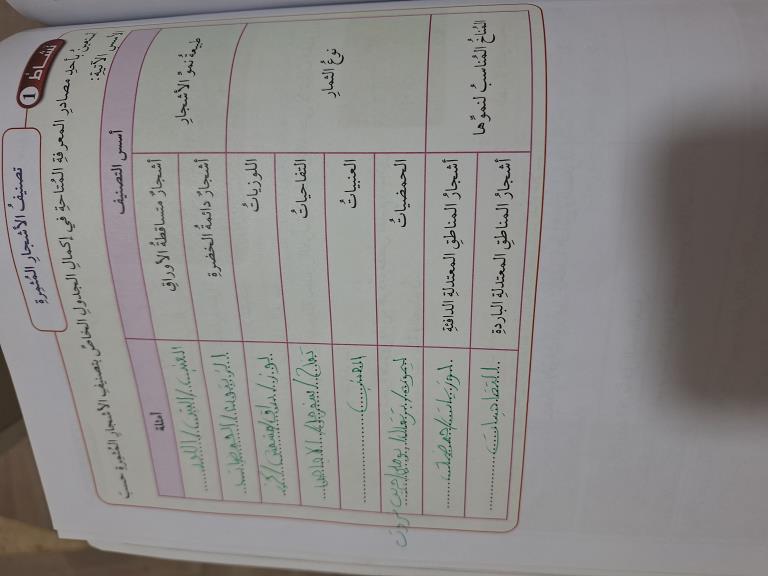 نشاط 1
تصنيفُ الأشجارِ المُثمِرةِ
أستعينُ بأحدِ مصادرِ المعرفةِ المُتاحةِ في إكمالِ الجدولِ الخاصِّ بتصنيفِ الأشجارِ المُثمِرةِ حسبَ
الأسسِ الآتيةِ:
أسس التصنيف
أمثلة
طبيعةُ نموِّ الأشجارِ
أشجارٌ متساقطةُ الأوراقِ
العنب / التين /
أشجارٌ دائمةُ الخضرةِ
الزيتون / الحمضيات
نوعُ الثمارِ
اللوزياتُ
لوز /
التفاحياتُ
تفاح /
العنبياتُ
العنب
الحمضياتُ
ليمون / برتقال / بوملي /
المُناخُ المُناسبُ لنموِّها
أشجارُ المناطقِ المعتدلةِ الدافئةِ
أشجارُ المناطقِ المعتدلةِ الباردةِ
التفاحيات